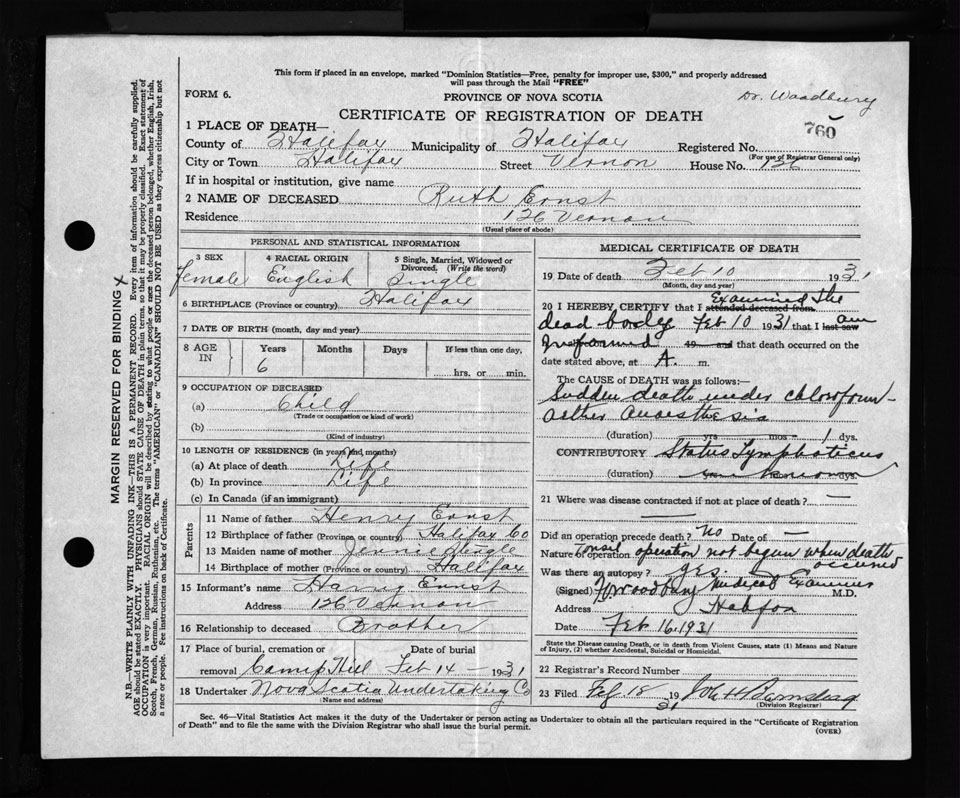 This form if placed in an envelope, marked "Dominion Statistics—Free, penalty for improper use, $300," and properly addressed
will pass through the Mail "FREE"
FORM 6.
PROVINCE OF NOVA SCOTIA
Dr. Woodbury
CERTIFICATE OF REGISTRATION OF DEATH
760
1 PLACE OF DEATH—
County of Halifax Municipality of Halifax Registered No.
(For use of Registrar General only)
City or Town Halifax Street Vernon House No. 126
If in hospital or institution, give name
2 NAME OF DECEASED Ruth Ernst
Residence 126 Vernon
(Usual place of abode)
PERSONAL AND STATISTICAL INFORMATION
3 SEX 4 RACIAL ORIGIN 5 Single, Married, Widowed or
Divorced. (Write the word)
female English Single
6 BIRTHPLACE (Province or country) Halifax
7 DATE OF BIRTH (month, day and year)
8 AGE IN Years Months Days If less than one day,
6 hrs. or min.
9 OCCUPATION OF DECEASED
(a) Child
(Trade or occupation or kind of work)
(b)
(Kind of industry)
10 LENGTH OF RESIDENCE (in years and months)
(a) At place of death Life
(b) In province Life
(c) In Canada (if an immigrant)
Parents
11 Name of father Henry Ernst
12 Birthplace of father (Province or country) Halifax Co
13 Maiden name of mother Jennie
14 Birthplace of mother (Province or country) Halifax
15 Informant's name Harry Ernst
Address 126 Vernon
16 Relationship to deceased Brother
17 Place of burial, cremation or Date of burial
removal Camp Hill Feb 14 - 1931
18 Undertaker Nova Scotia Undertaking Co
(Name and address)
MEDICAL CERTIFICATE OF DEATH
19 Date of death Feb 10 1931
(Month, day and year)
20 I HEREBY CERTIFY that I attended deceased from Examined the
dead body Feb 10 1931 that I last saw am
Informed 19 and that death occurred on the
date stated above, at A. m.
The CAUSE of DEATH was as follows:—
Sudden death under chloroform -
aether anaesthesia
(duration) yrs mos - 1 dys.
CONTRIBUTORY Status Lymphaticus
(duration) yrs mos dys.
21 Where was disease contracted if not at place of death? —
Did an operation precede death? No Date of —
Nature of operation operation not begun when death
occurred
Was there an autopsy? yes.
(Signed) Woodbury Medical Examiner M.D.
Address Halifax
Date Feb 16, 1931
State the Disease causing Death, or in death from Violent Causes, state (1) Means and Nature
of Injury, (2) whether Accidental, Suicidal or Homicidal.
22 Registrar's Record Number
23 Filed Feb 18 1931
(Division Registrar)
Sec. 46—Vital Statistics Act makes it the duty of the Undertaker or person acting as Undertaker to obtain all the particulars required in the "Certificate of Registration
of Death" and to file the same with the Division Registrar who shall issue the burial permit.
(OVER)
MARGIN RESERVED FOR BINDING
N.B.—WRITE PLAINLY WITH UNFADING INK—THIS IS A PERMANENT RECORD. Every item of information should be carefully supplied.
AGE should be stated EXACTLY. PHYSICIANS should STATE CAUSE OF DEATH in plain terms, so that it may be properly classified. Exact statement of
OCCUPATION is very important. RACIAL ORIGIN will be described by stating to what people or race the deceased person belonged, whether English, Irish,
Scotch, French, German, Russian, Ruthenian, etc. The terms "AMERICAN" or "CANADIAN" SHOULD NOT BE USED as they express citizenship but not
a race or people. See instructions on back of Certificate.